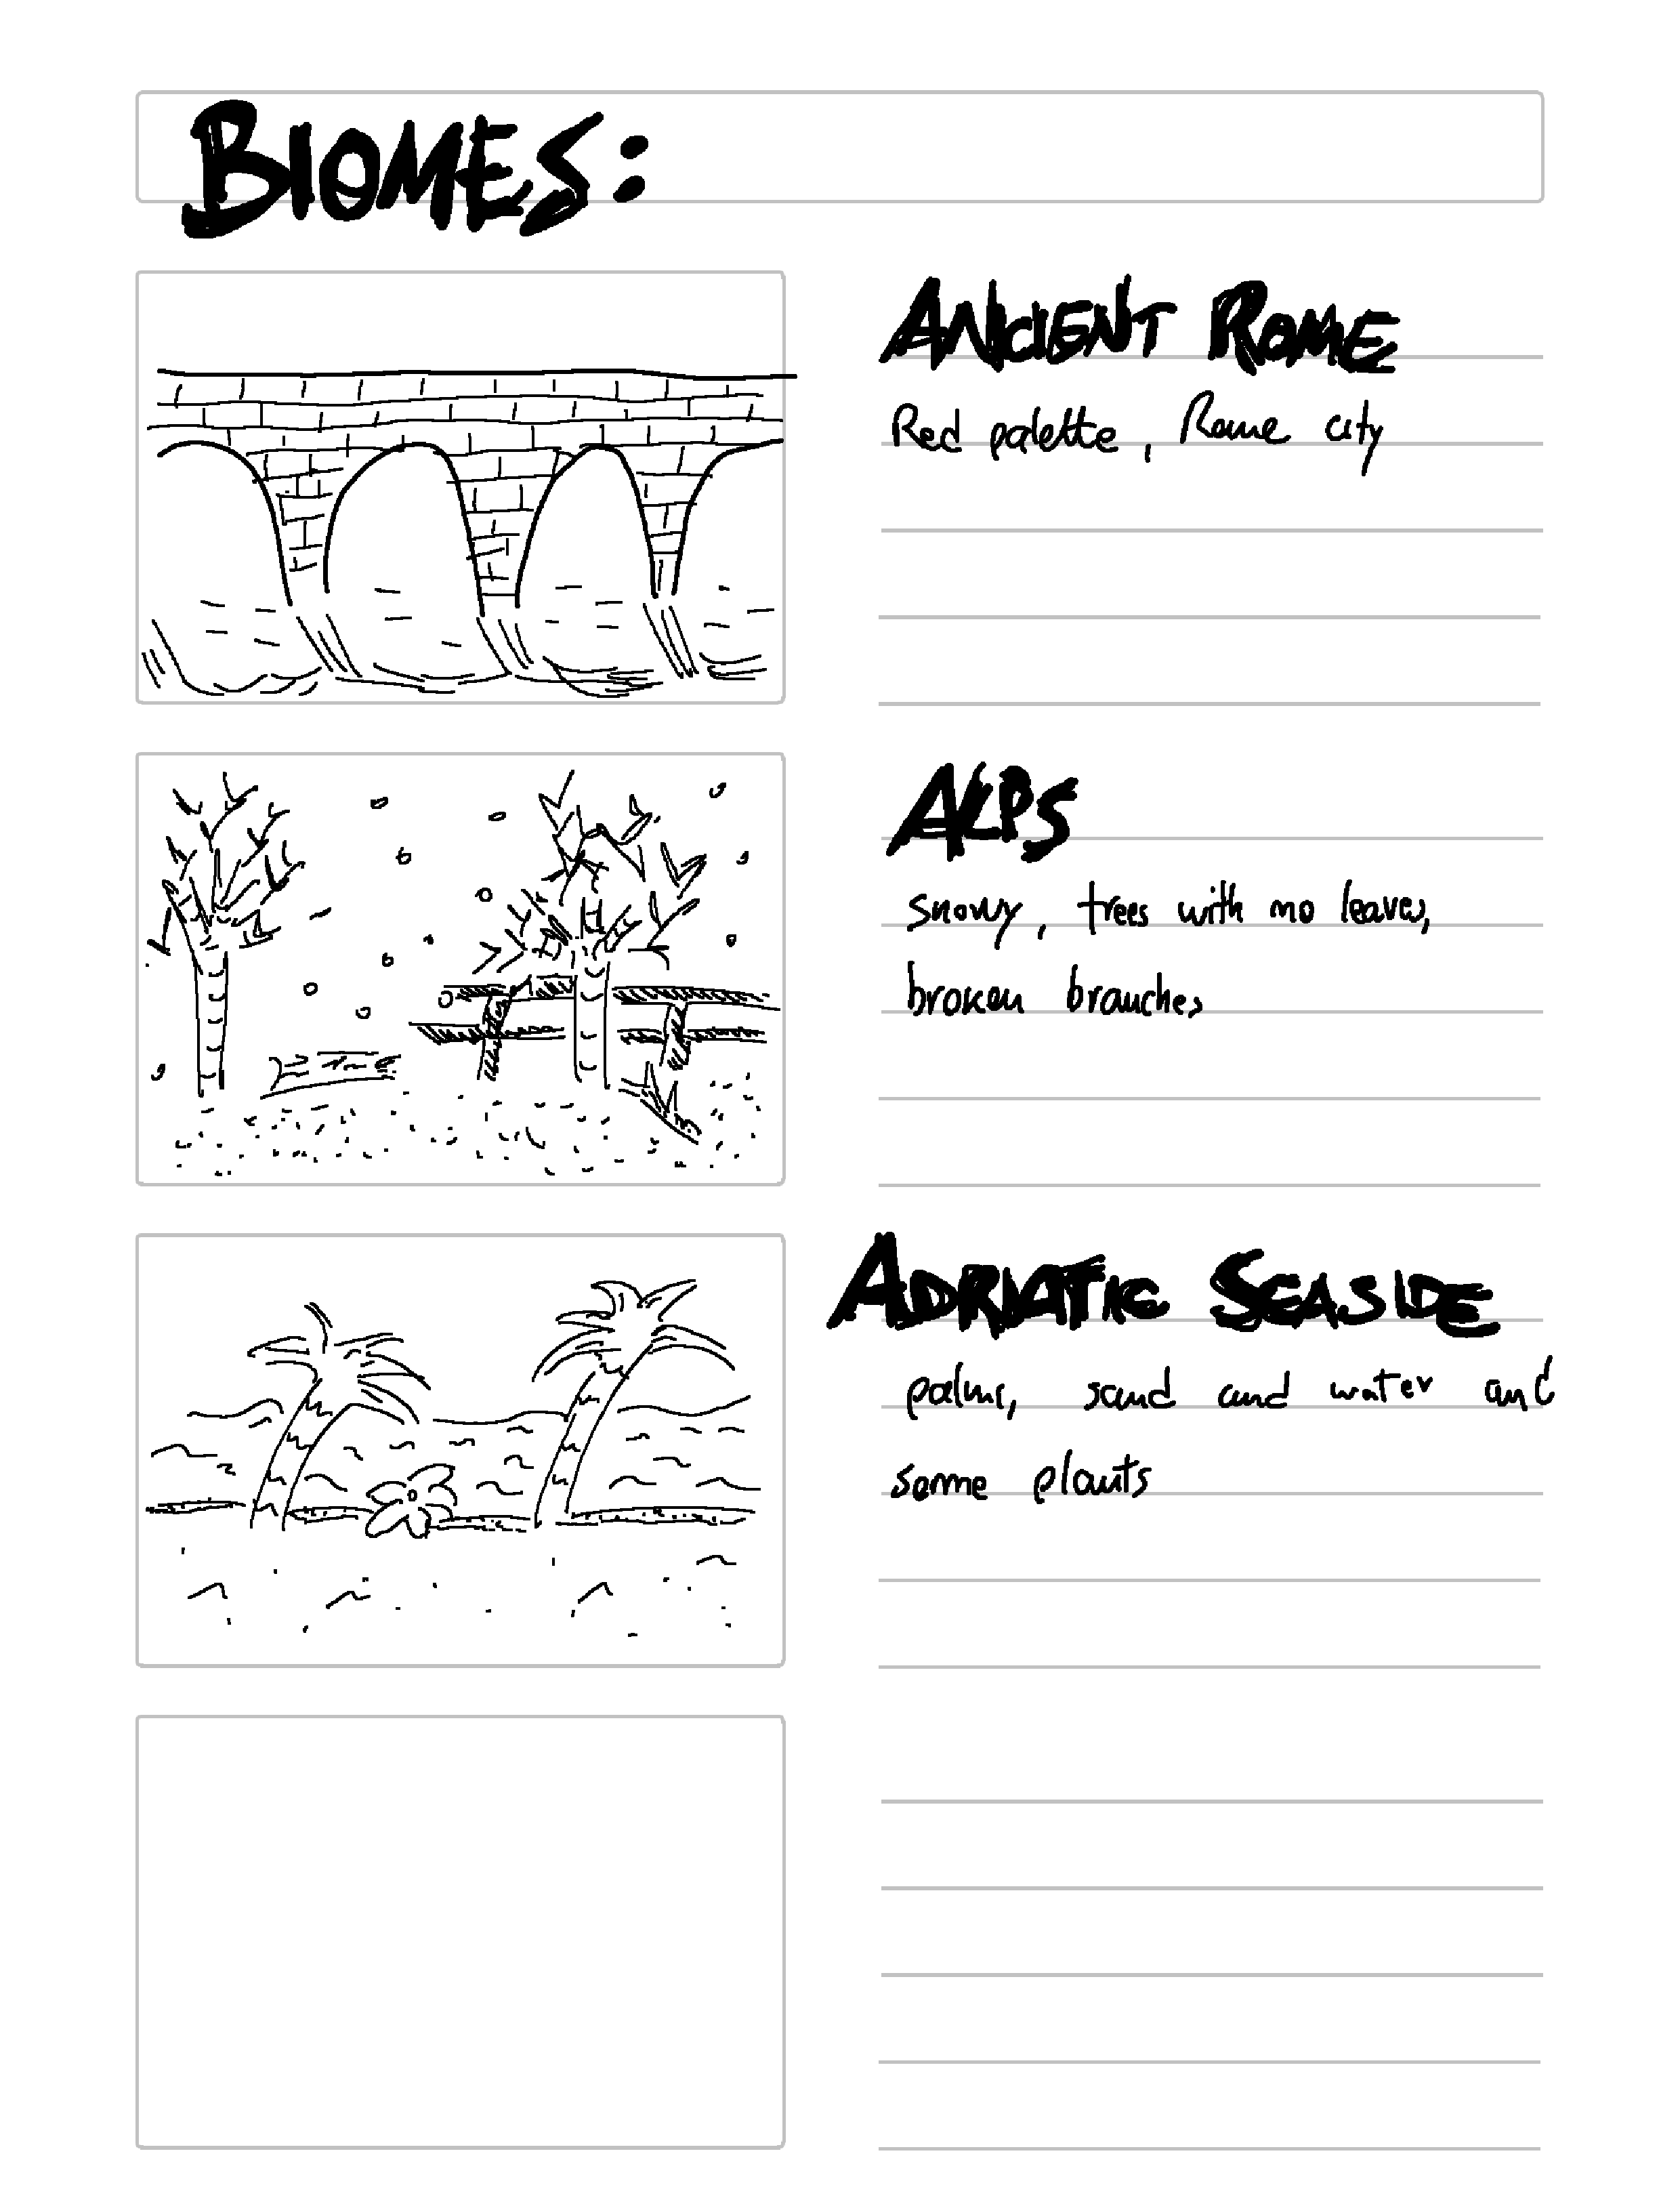 BIOMES:
ANCIENT ROME
Red palette, Rome city
ALPS
snowy, trees with no leaves,
broken branches
ADRIATIC SEASIDE
palms, sand and water and
some plants